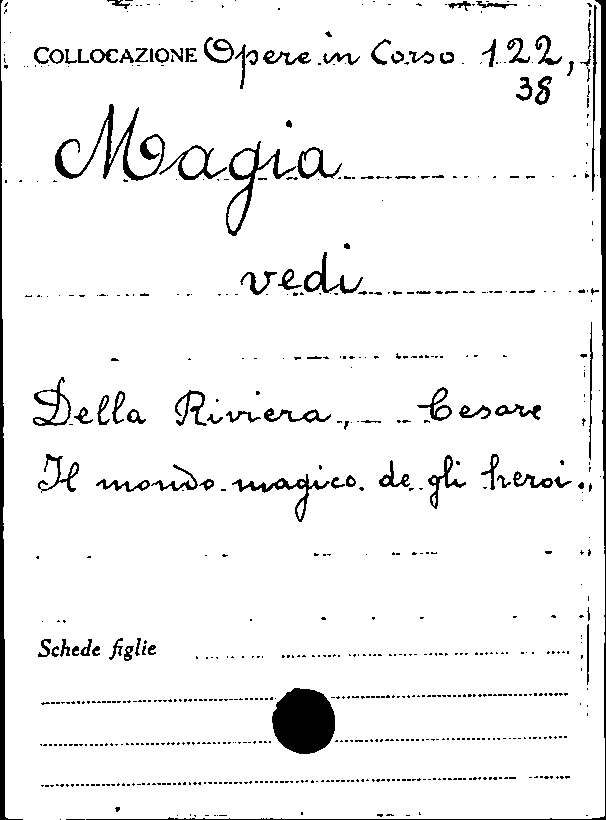 COLLOCAZIONE Opere in Corso 122,
38
Magia
vedi
Della Riviera, Cesare
Il mondo magico de gli heroi.
Schede figlie